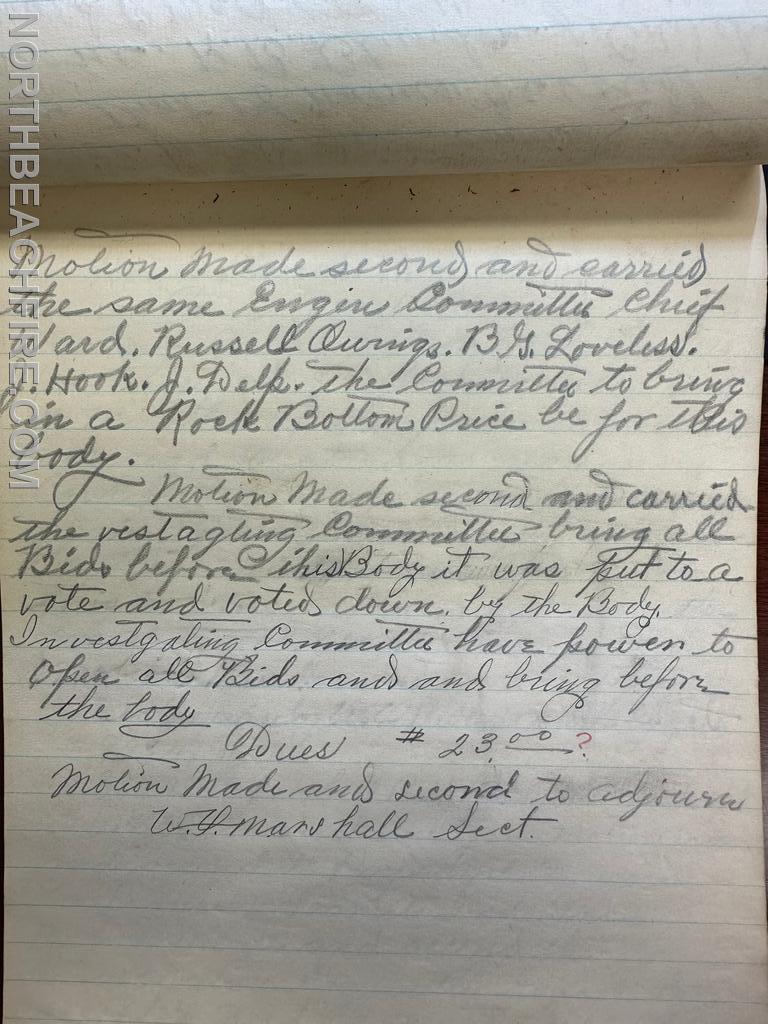 NORTHBEACHFIRE.COM
Motion Made second and carried
the same Engin Committee Chief
Ward. Russell Owings. B.G. Loveless.
Hook. J. Delp. the Committee to bring
in a Rock Bottom Price be for this
body.
Motion Made second and carried
the vestagting Committee bring all
Bids before this Body it was put to a
vote and voted down. by the Body.
Investgating Committee have power to
open all Bids and and bring before
the body
Dues # 23.00 ?
Motion Made and second to adjourn
Marshall Sect.